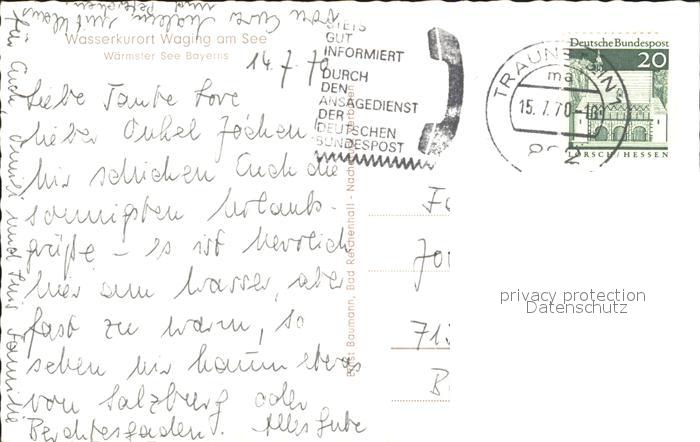 Wasserkurort Waging am See
Wärmster See Bayerns
14.7.70
Liebe Tante Lore
lieber Onkel Jochen
Wir schicken Euch die
sonnigsten Urlaubs-
grüße - es ist herrlich
hier am Wasser, aber
fast zu warm, so
sehen wir kaum etwas
von Salzburg oder
Berchtesgaden. Alles Gute
für Euch damit und Familie
von Eurer mit Klaus
und
STETS
GUT
INFORMIERT
DURCH
DEN
ANSAGEDIENST
DER
DEUTSCHEN
BUNDESPOST
Ernst Baumann, Bad Reichenhall - Nachdruck verboten
TRAUNSTEIN
15.7.70-18
Deutsche Bundespost
20
LORSCH/HESSEN
privacy protection
Datenschutz